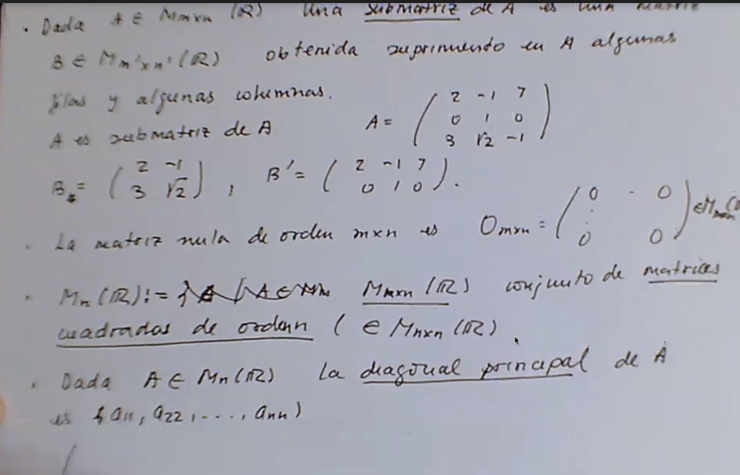 • Dada A ∈ Mmxn (ℝ) Una submatriz de A es una matriz
B ∈ Mm'xn' (ℝ) obtenida suprimiento en A algunas
filas y algunas columnas.
A es submatriz de A A = ( 2 -1 7 ; 0 1 0 ; 3 √2 -1 )
B = ( 2 -1 ; 3 √2 ) , B' = ( 2 -1 7 ; 0 1 0 ) .
• La matriz nula de orden mxn es Omxn = ( 0 . 0 ; : ; 0 0 ) ∈ Mmxn (
• Mn (ℝ) := Mnxn (ℝ) conjunto de matrices
cuadradas de orden n ( ∈ Mnxn (ℝ)
• Dada A ∈ Mn (ℝ) La diagonal principal de A
es {a11, a22, ...., ann)